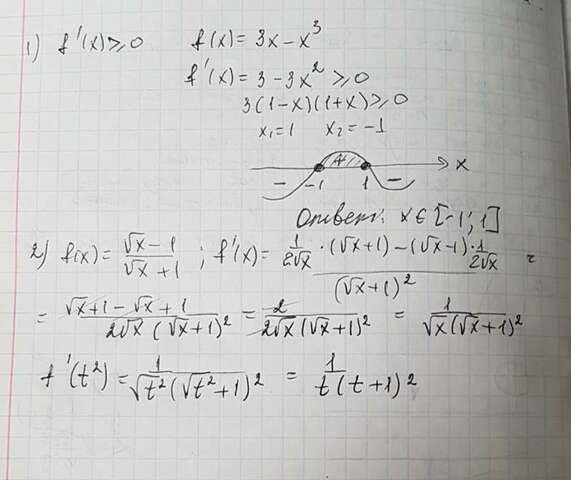 1) f'(x) ≥ 0   f(x) = 3x − x³
f'(x) = 3 − 3x² ≥ 0
3(1−x)(1+x) ≥ 0
x₁ = 1   x₂ = −1
− −1 + 1 − x
Ответ: x ∈ [−1; 1]
2) f(x) = (√x − 1)/(√x + 1) ; f'(x) = (1/(2√x) · (√x+1) − (√x−1) · 1/(2√x))/(√x+1)² =
= (√x + 1 − √x + 1)/(2√x (√x+1)²) = 2/(2√x (√x+1)²) = 1/(√x (√x+1)²)
f'(t²) = 1/(√t² (√t² + 1)²) = 1/(t (t+1)²)